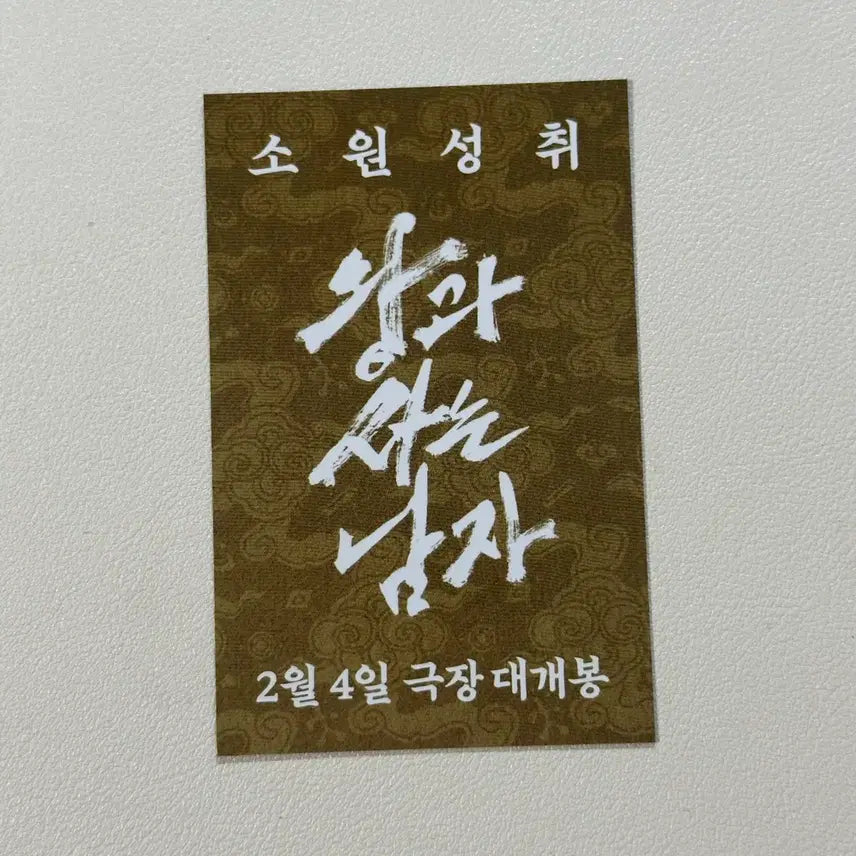 소원성취
왕과
사는
남자
2월 4일 극장 대개봉